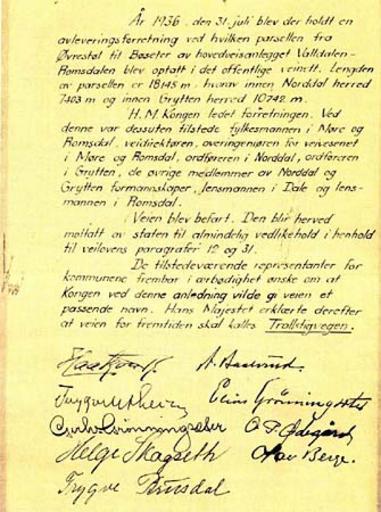 År 1936 den 31. juli blev der holdt en
avleveringsforretning ved hvilken parsellen fra
Øvrestøl til Bøseter av hovedveisanlegget Valldalen-
Romsdalen blev optatt i det offentlige veinett. Lengden
av parsellen er 18145 m. hvorav innen Norddal herred
7403 m og innen Grytten herred 10742 m.
H.M. Kongen ledet forretningen. Ved
denne var dessuten tilstede fylkesmannen i Møre og
Romsdal, veidirektøren, overingeniøren for veivesenet
i Møre og Romsdal, ordføreren i Norddal, ordføreren
i Grytten, de øvrige medlemmer av Norddal og
Grytten formannskaper, lensmannen i Dale og lens-
mannen i Romsdal.
Veien blev befart. Den blir herved
mottatt av staten til almindelig vedlikehold i henhold
til veilovens paragrafer 12 og 31.
De tilstedeværende representanter for
kommunene frembar i ærbødighet ønske om at
Kongen ved denne anledning vilde gi veien et
passende navn. Hans Majestet erklærte derefter
at veien for fremtiden skal kalles Trollstigvegen.
Haakon R.
Helge Skagseth
Olav Berge.
Trygve